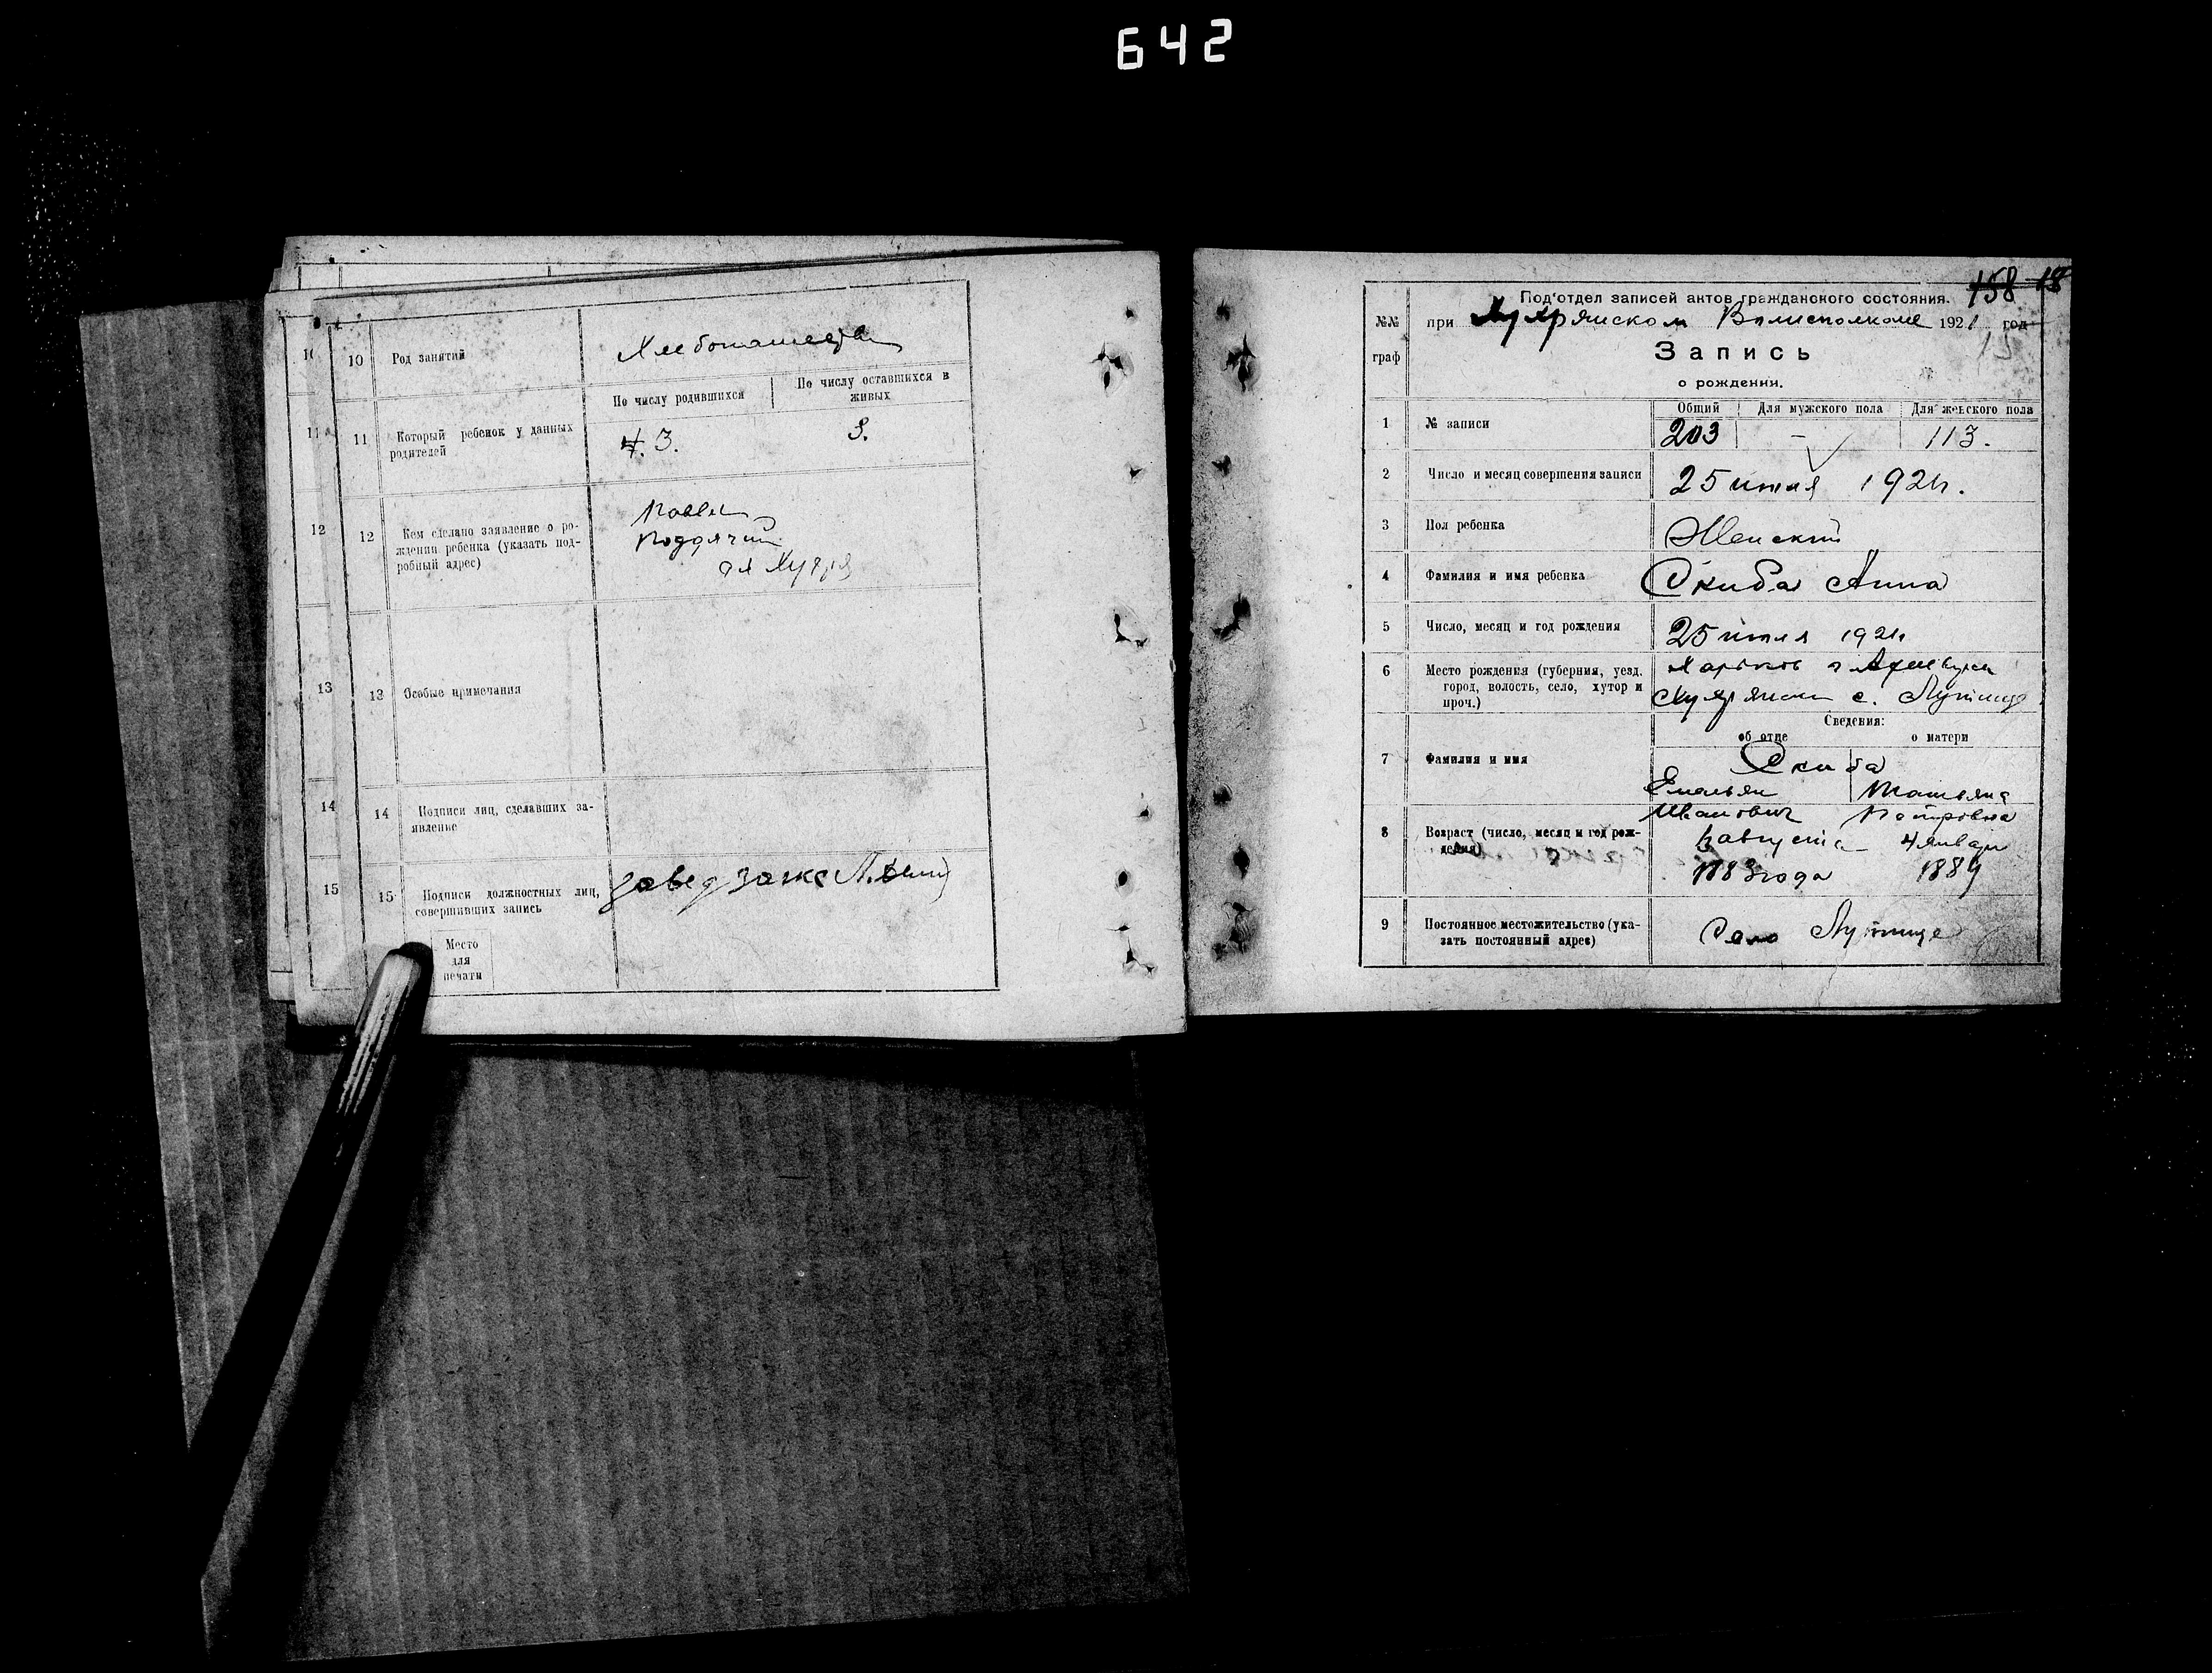 642
10 Род занятий Хлебопашество
По числу родившихся По числу оставшихся в живых
11 Который ребенок у данных
родителей
4. 3. 3.
12 Кем сделано заявление о ро-
ждении ребенка (указать под-
робный адрес)
Павел
Поддячий
13 Особые примечания
14 Подписи лиц, сделавших за-
явление
15 Подписи должностных лиц,
совершивших запись
завед загс
Место
для
печати
10
11
12
13
14
15
158 18
Под'отдел записей актов гражданского состояния.
№№
граф
при Хухрянском Волисполкоме 1921 год
15
Запись
о рождении.
Общий Для мужского пола Для женского пола
1 № записи 203 – 113.
2 Число и месяц совершения записи 25 июля 1921г.
3 Пол ребенка Женский
4 Фамилия и имя ребенка Скиба Анна
5 Число, месяц и год рождения 25 июля 1921г
6 Место рождения (губерния, уезд,
город, волость, село, хутор и
проч.)
Харьков
Хухрянск с. Лутище
Сведения:
об отце о матери
7 Фамилия и имя
Скиба
Емельян Татьяна
Иванович Петровна
8 Возраст (число, месяц и год рож-
дения)
августа 4 январ
1883 года 1889
9 Постоянное местожительство (ука-
зать постоянный адрес)
Село Лутище